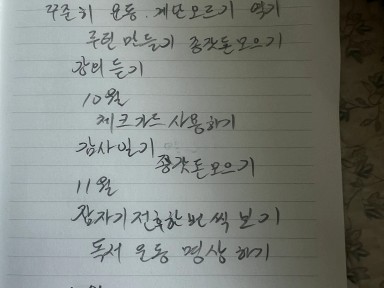 꾸준히 운동. 계단오르기 역기
루틴 만들기 종잣돈모으기
강의 듣기
10월
체크카드 사용하기
감사일기
종잣돈모으기
11월
잠자기전후한번씩 보기
독서 운동 명상 하기